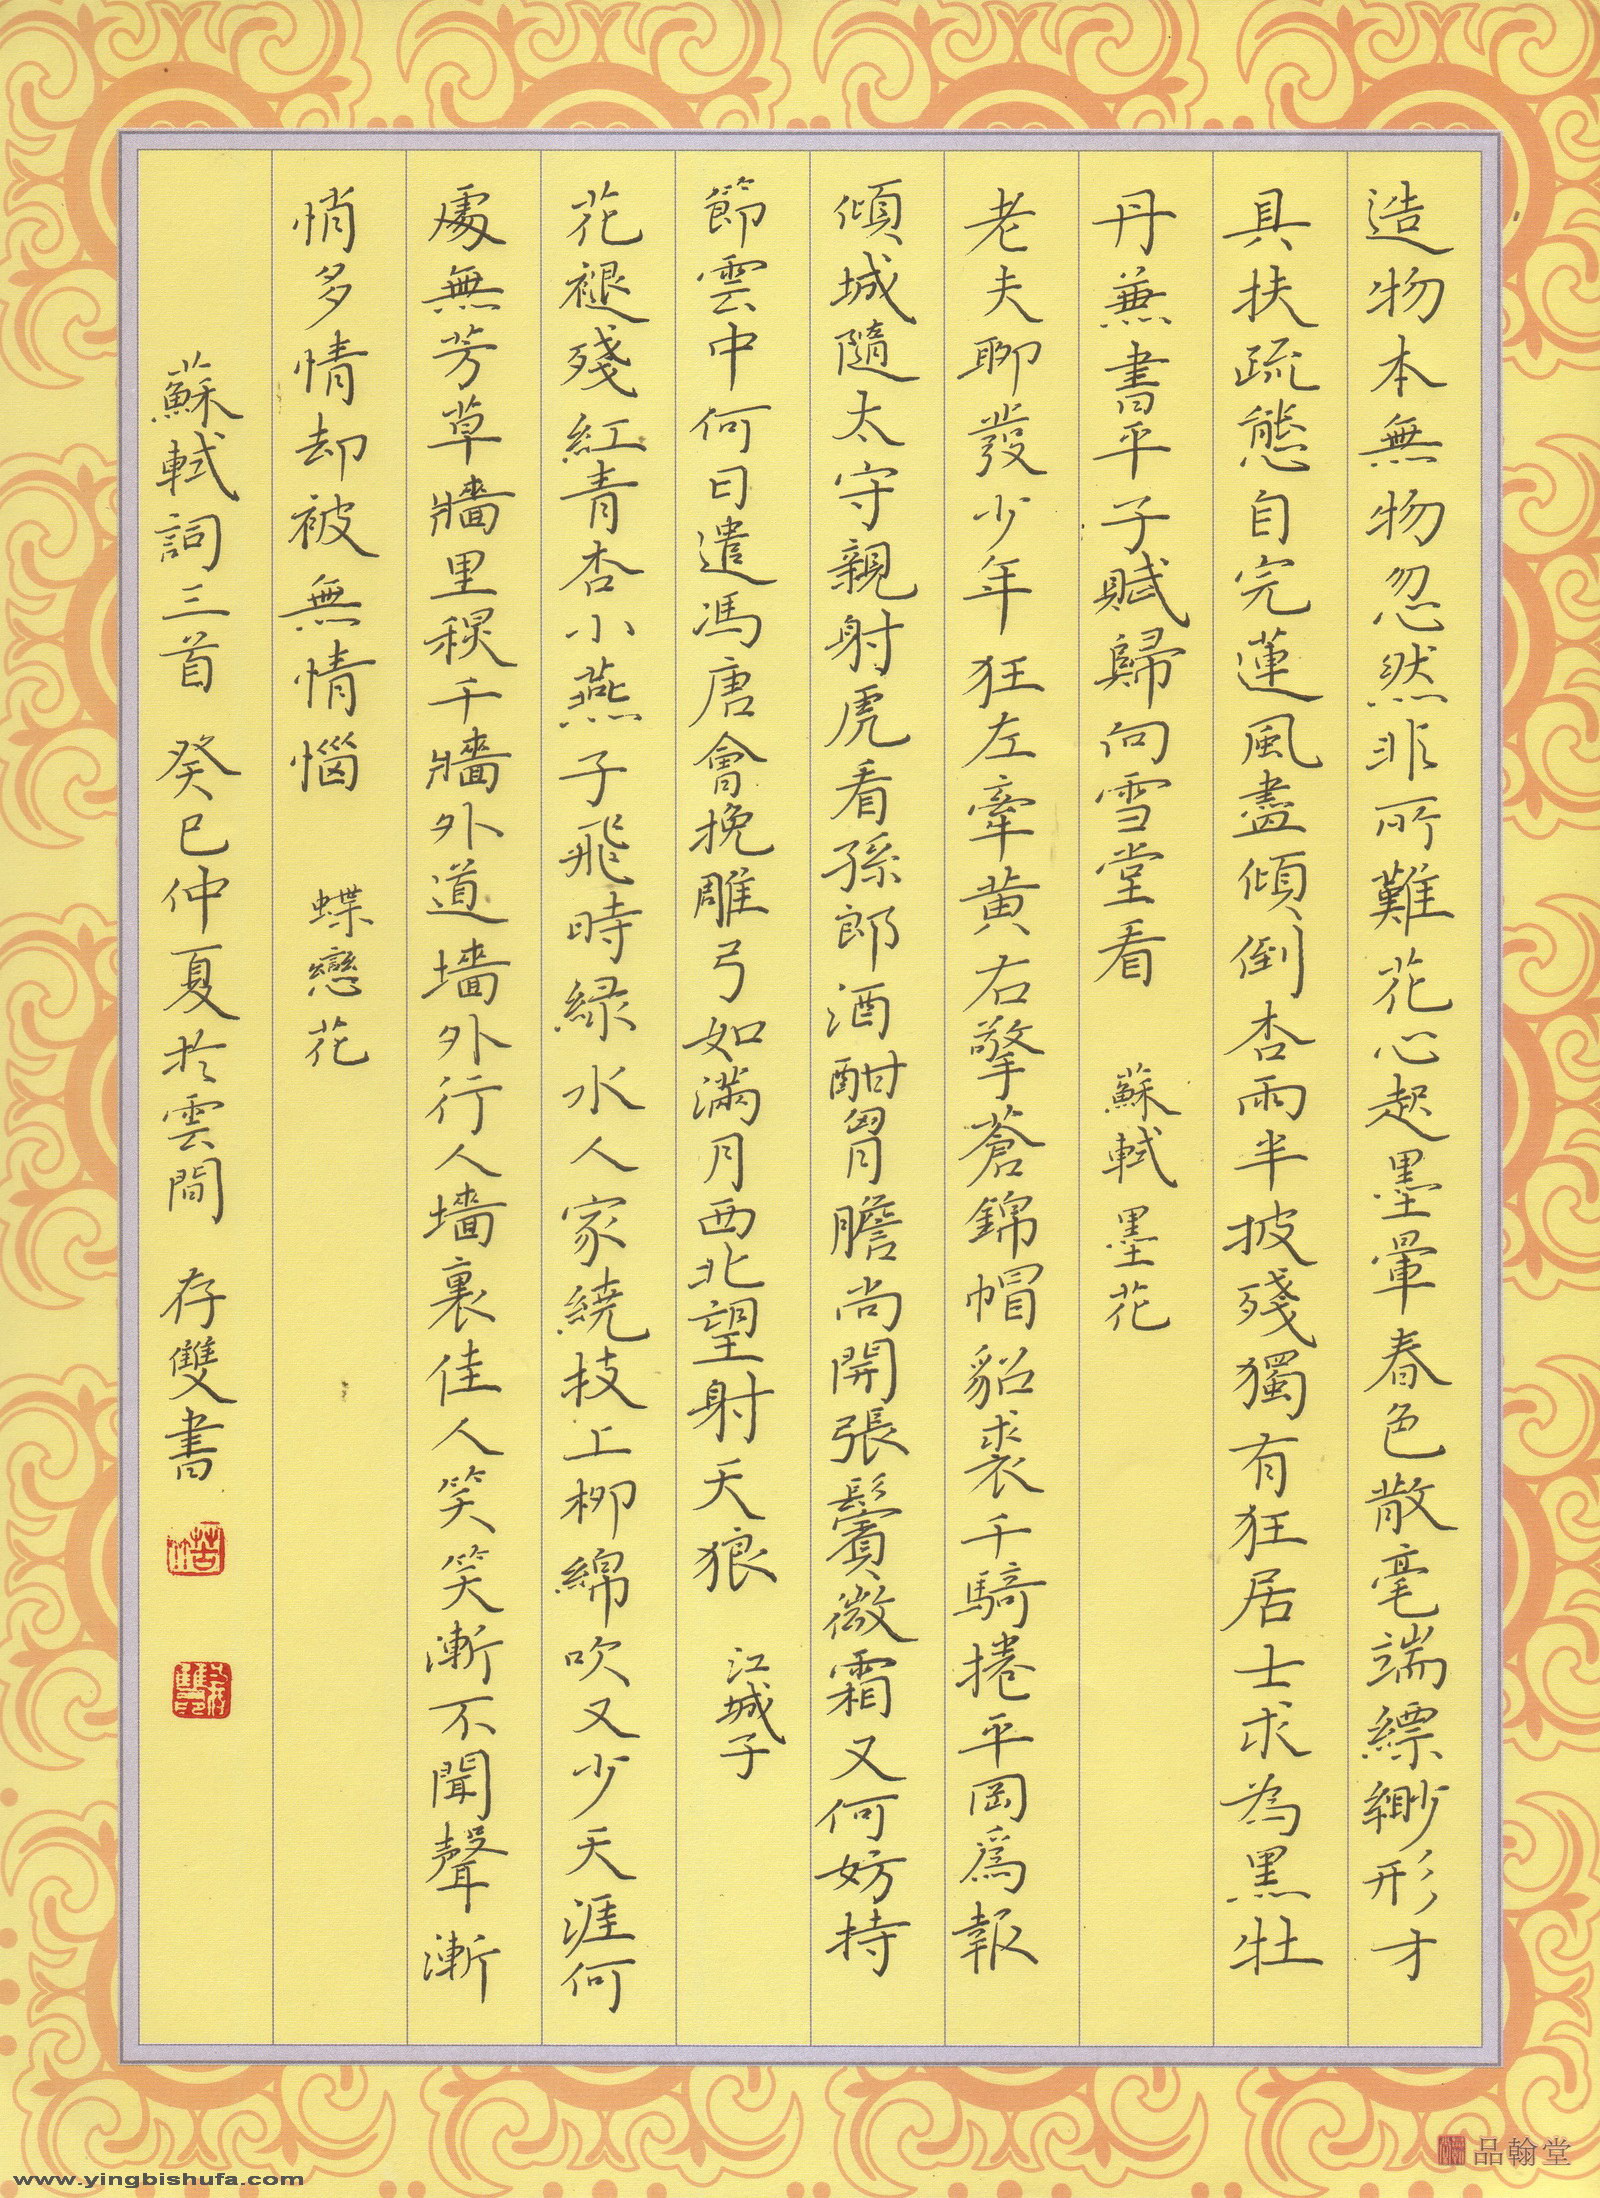 造物本無物忽然非所難花心起墨暈春色散毫端縹緲形才
具扶疏態自完蓮風盡傾倒杏雨半披殘獨有狂居士求為黑牡
丹兼書平子賦歸向雪堂看 蘇軾 墨花
老夫聊發少年狂左牽黄右擎蒼錦帽貂裘千騎捲平岡爲報
傾城隨太守親射虎看孫郎酒酣胷膽尚開張鬢微霜又何妨持
節雲中何日遣馮唐會挽雕弓如滿月西北望射天狼 江城子
花褪殘紅青杏小燕子飛時緑水人家繞技上栁綿吹又少天涯何
處無芳草牆里鞦千牆外道墻外行人墻裏佳人笑笑漸不聞聲漸
悄多情却被無情惱 蝶戀花
蘇軾詞三首 癸巳仲夏於雲間 存雙書
品翰堂
www.yingbishufa.com